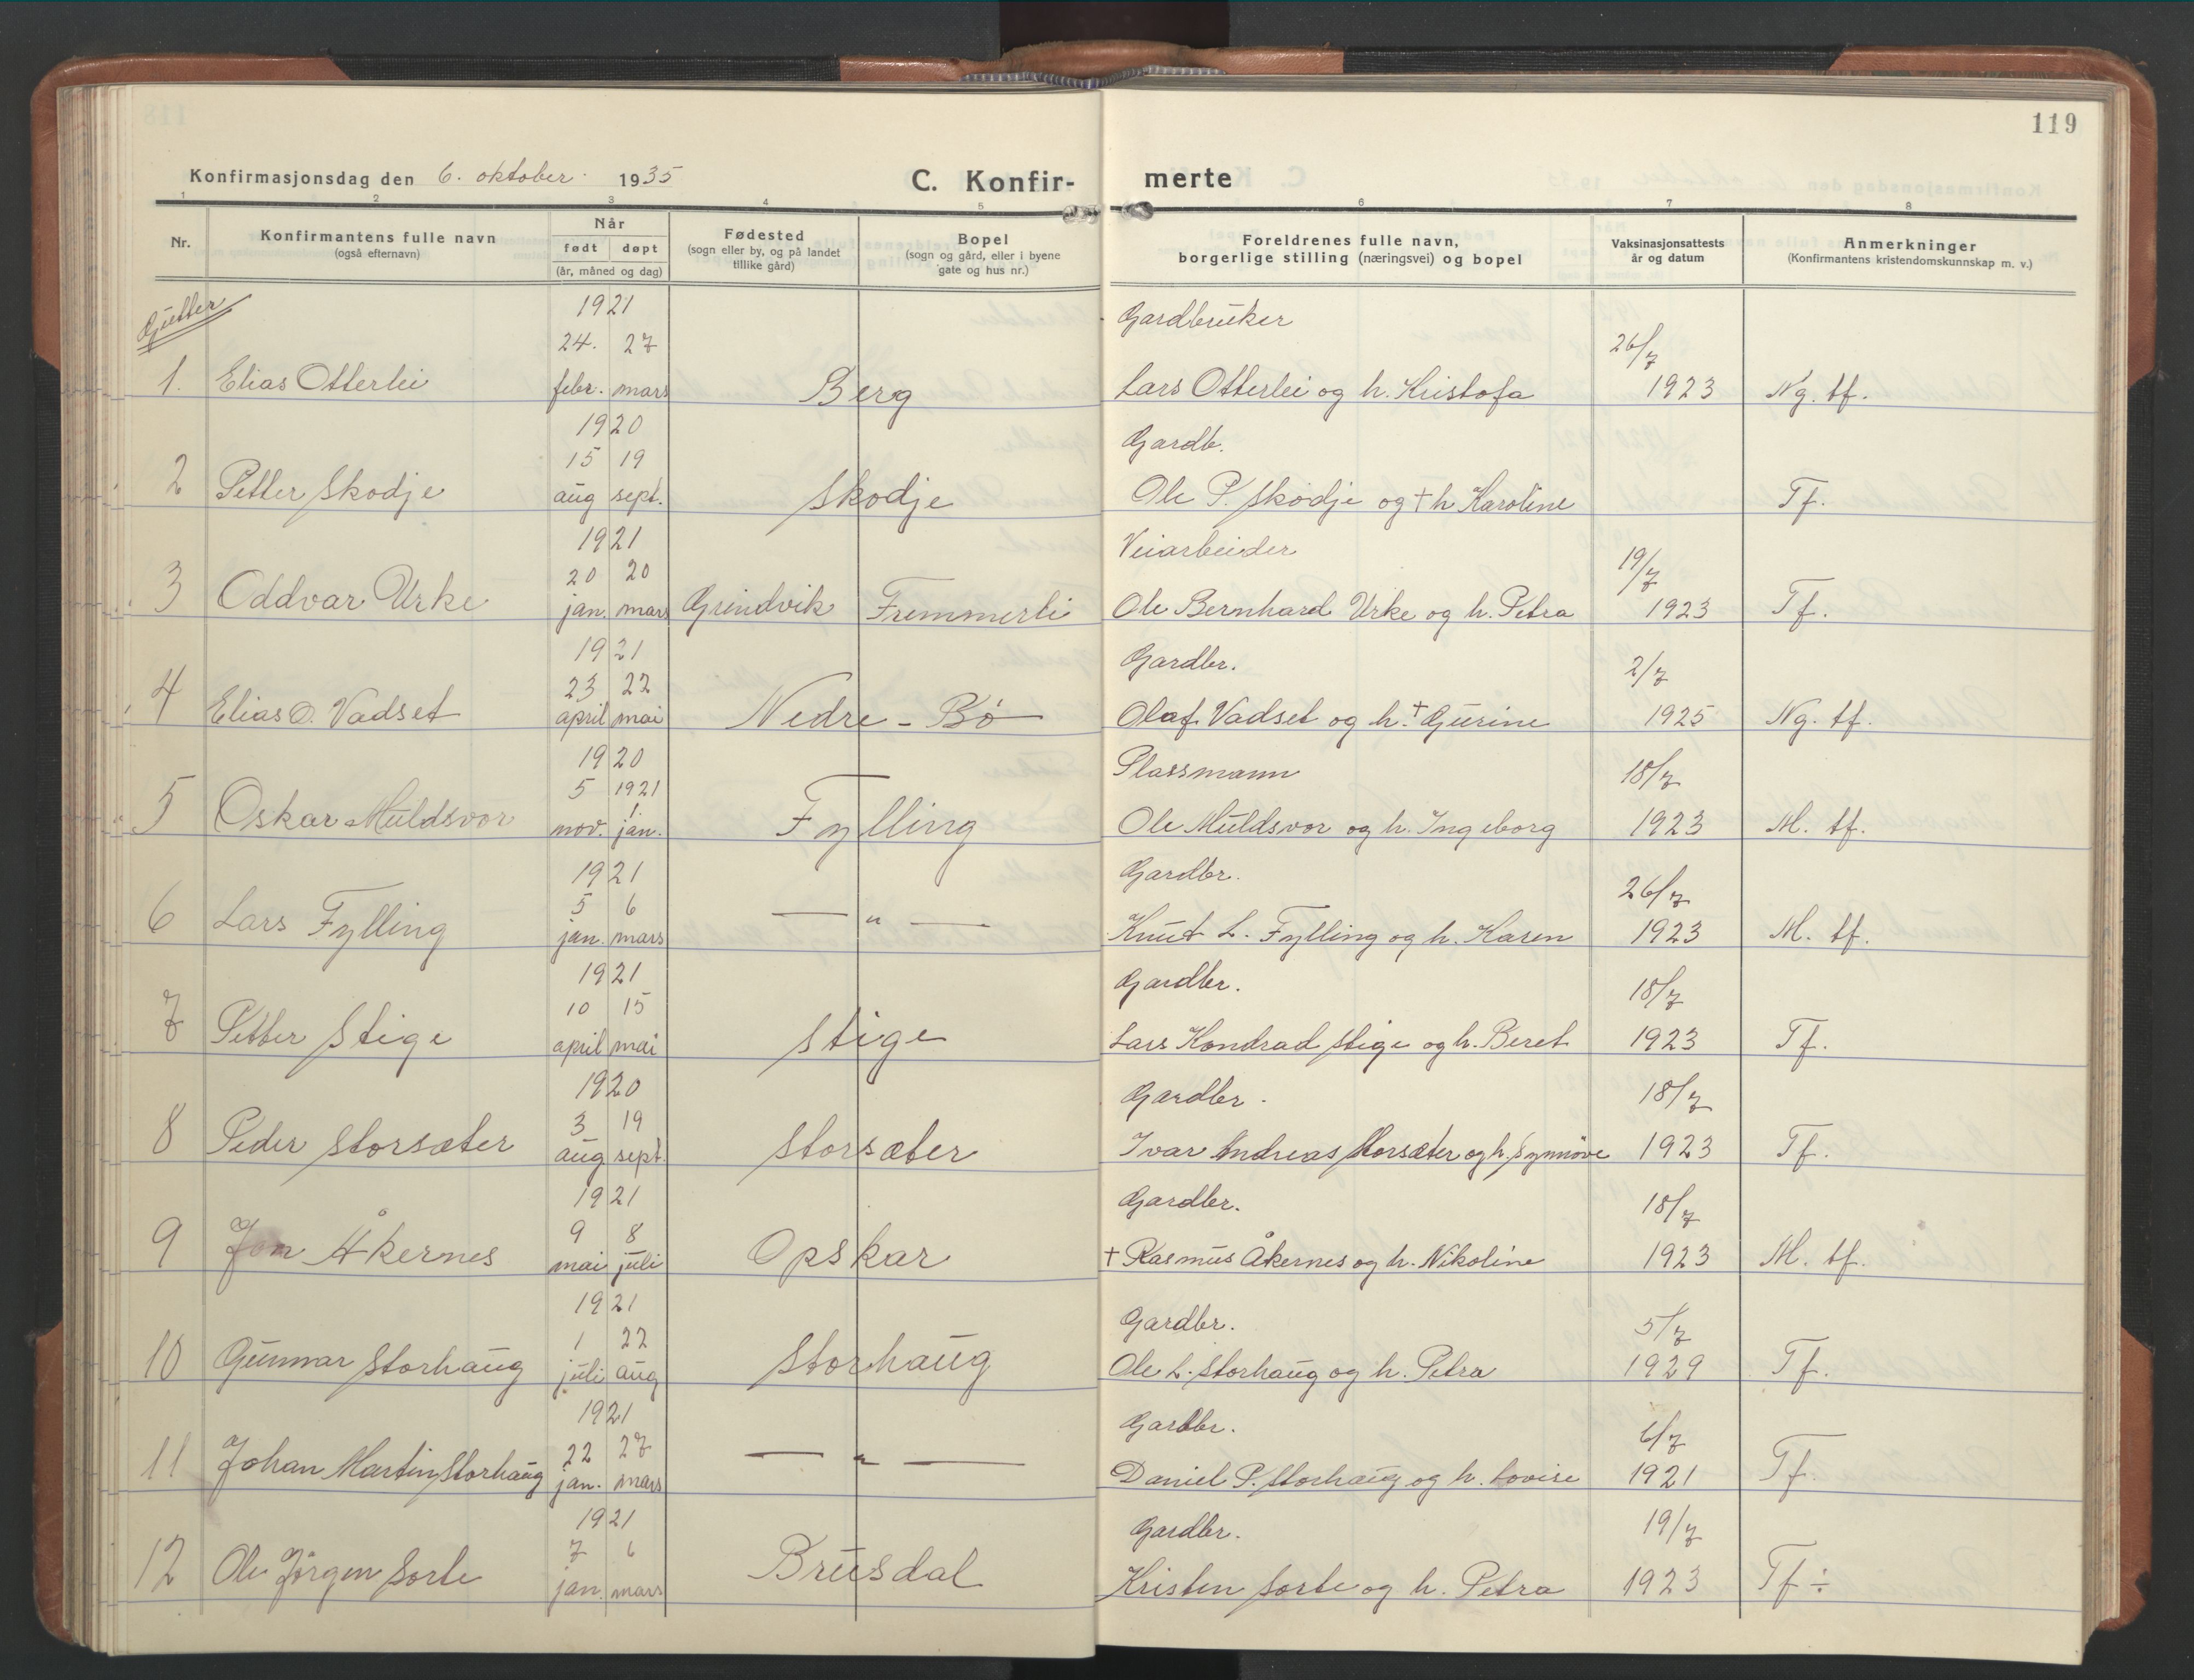 119
Konfirmasjonsdag den 6. oktober 1935
C. Konfir- merte
1 2 3 4 5 6 7 8
Nr.
Konfirmantens fulle navn
(også efternavn)
Når
født døpt
(år, måned og dag)
Fødested
(sogn eller by, og på landet
tillike gård)
Bopel
(sogn og gård, eller i byene
gate og hus nr.)
Foreldrenes fulle navn,
borgerlige stilling (næringsvei) og bopel
Vaksinasjonsattests
år og datum
Anmerkninger
(Konfirmantens kristendomskunnskap m. v.)
Gutter
1921
Gardbruker
24. 27 26/7
1. Elias Otterlei febr. mars Berg Lars Otterlei og h. Kristofa 1923 Ng. tf.
1920
Gardb.
15 19
2 Petter Skodje aug sept. Skodje Ole P. Skodje og + h Karoline Tf.
1921
Veiarbeider
20 20 19/7
3 Oddvar Urke jan. mars Grindvik Fremmerli Ole Bernhard Urke og h. Petra 1923 Tf.
1921
Gardbr.
23 22 2/7
4 Elias O. Vadset april mai Nedre - Bö Olaf Vadset og h. + Gurine 1925 Ng. tf.
1920
Plassmann
5 1921 18/7
5 Oskar Muldsvor nov. 1 jan. Fylling Ole Muldsvor og h. Ingeborg 1923 M. tf.
1921
Gardbr.
5 6 26/7
6 Lars Fylling jan. mars — " — Knut L. Fylling og h. Karen 1923 M. tf.
1921
Gardbr.
10 15 18/7
7 Petter Stige april mai Stige Lars Kondrad Stige og h. Beret 1923 Tf.
1920
Gardbr.
3 19 18/7
8 Peder Storsæter aug sept. Storsæter Ivar Andreas Storsæter og h. Synnöve 1923 Tf.
1921
Gardbr.
9 8 18/7
9 Jon Åkernes mai juli Opskar + Rasmus Åkernes og h. Nikoline 1923 M. tf.
1921
Gardbr.
1 22 5/7
10 Gunnar Storhaug juli aug Storhaug Ole L. Storhaug og h. Petra 1929 Tf.
1921
Gardbr.
22 27 6/7
11 Johan Martin Storhaug jan. mars — " — Daniel P. Storhaug og h. Lovise 1921 Tf.
1921
Gardbr.
7 6 19/7
12 Ole Jörgen Sorte jan. mars Brusdal Kristen Sorte og h. Petra 1923 Tf ÷